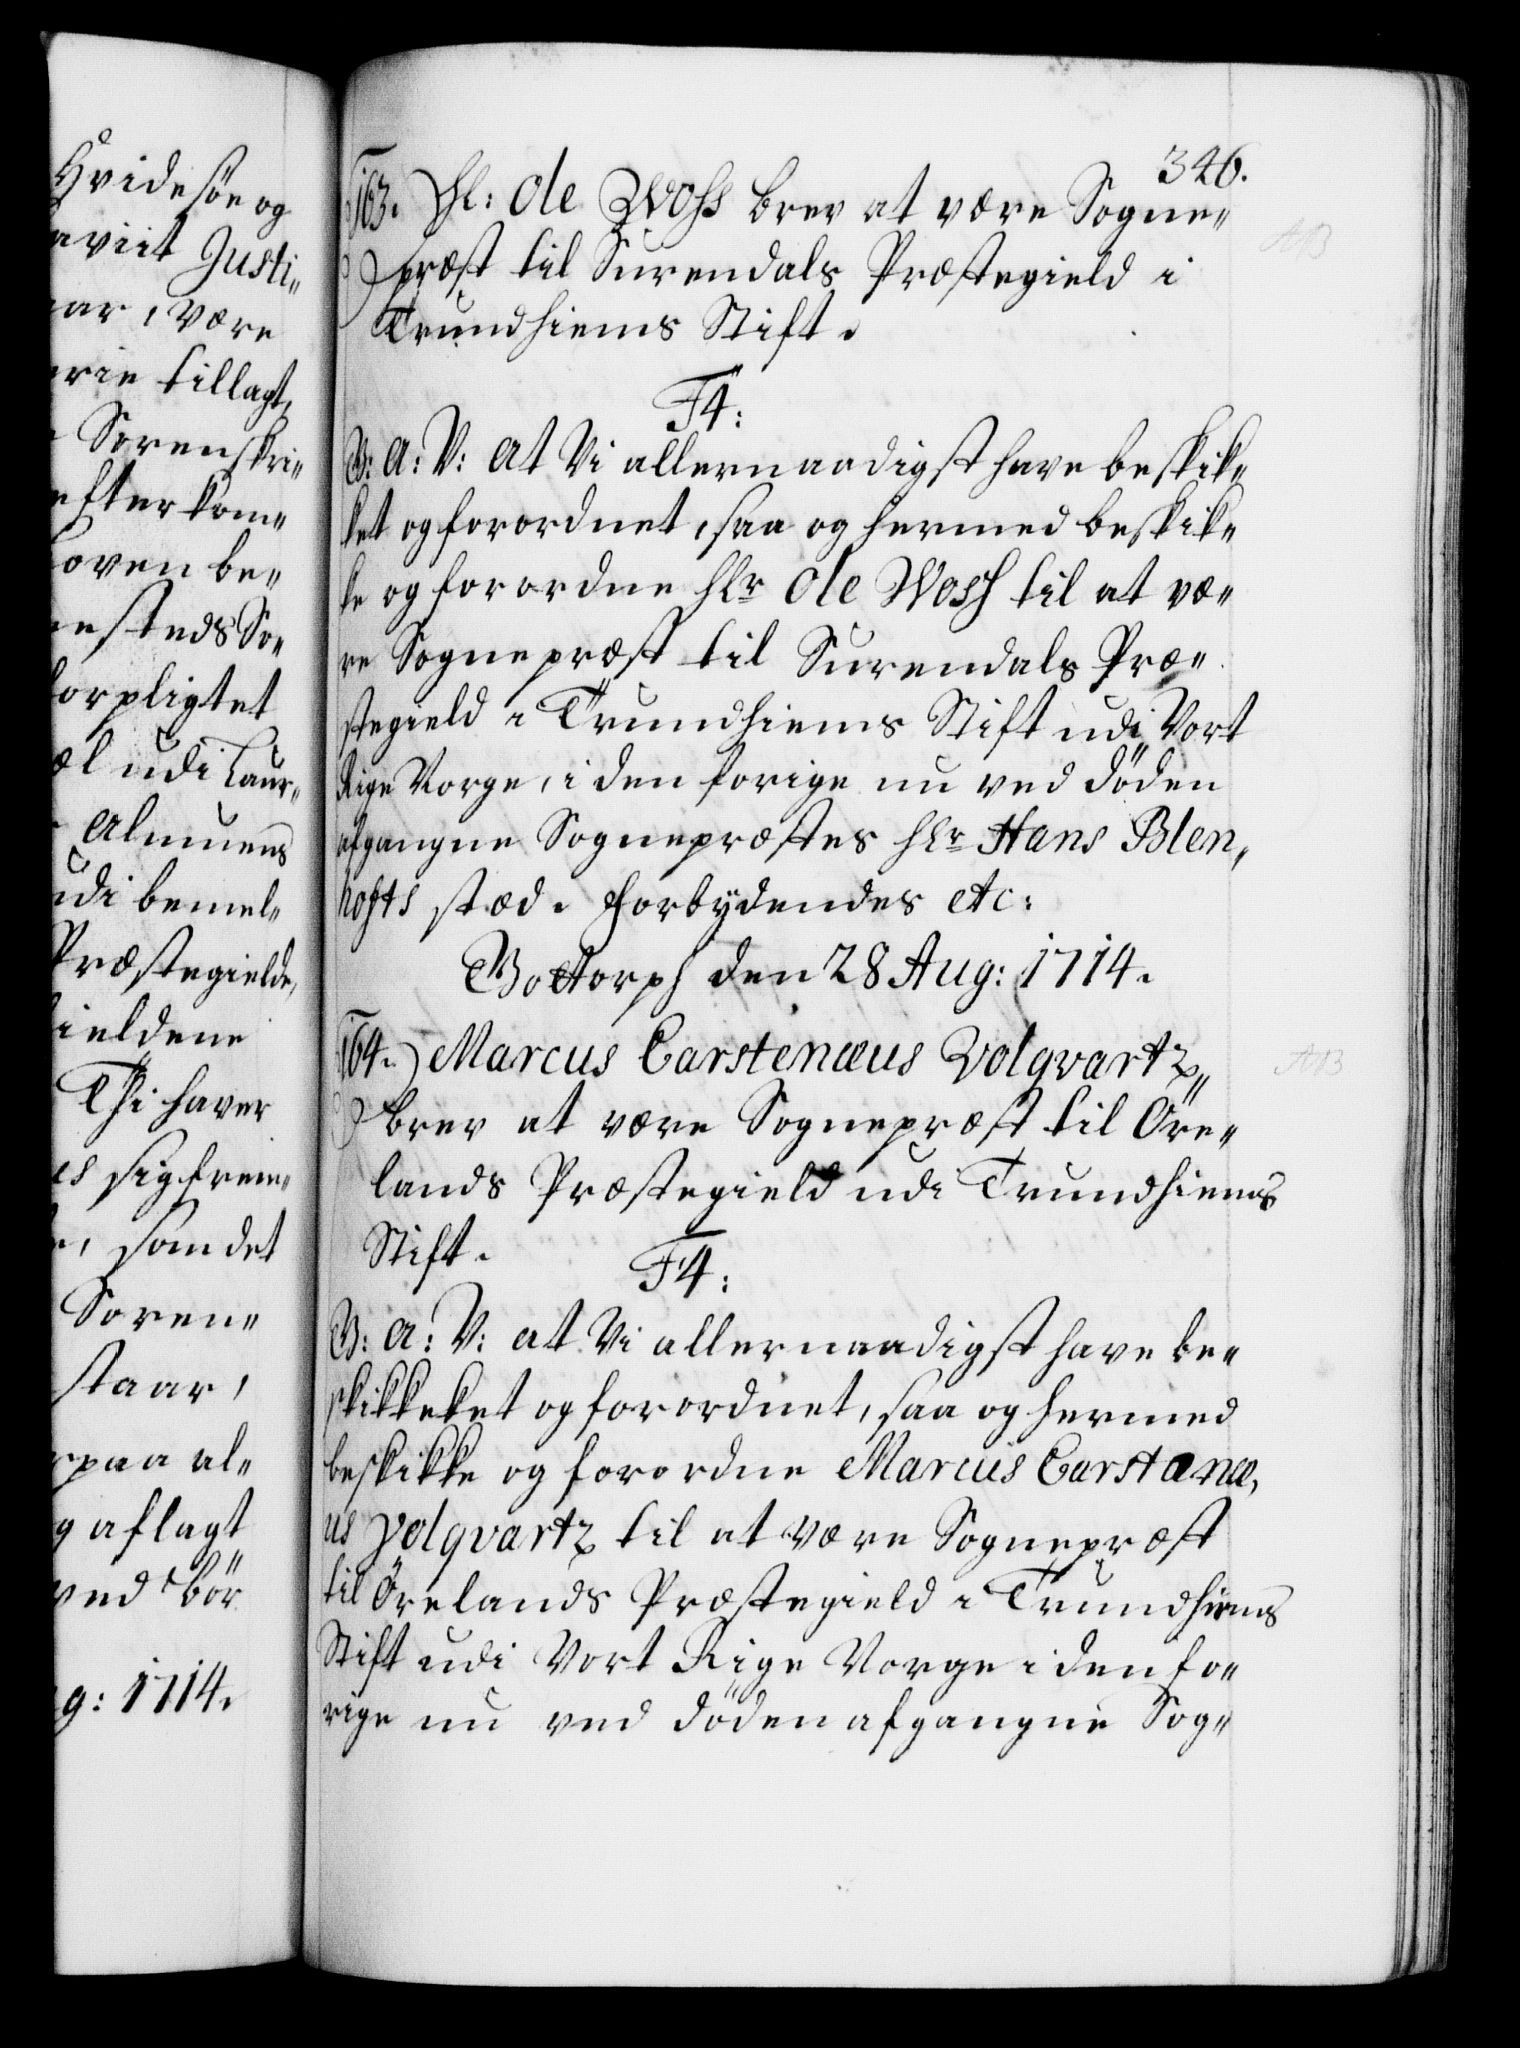 Hvidesöe og
Justi„
, være
tillagt,
Sorenskri„
efterkom„
oven be„
steds So„
forpligtet
udi Laur„
Almuens
udi bemel„
Præstegielde,
gieldene
Thi haver
sig frem„
, som det
Soren„
staar,
paa al„
aflagt
ved bör
g: 1714.
346.
163. Hl: Ole Woss brev at være Sogne„
præst til Surendals Præstegield i
Trundhiems Stift.
F4:
G: A: V: At Vi allernaadigst have beskik„
ket og forordnet, saa og hermed beskik„
ke og forordne Hlr Ole Woss til at væ„
re Sognepræst til Surendals Præ„
stegield i Trundhiems Stift udi Vort
Rige Norge, i den forige nu ved döden
afgangne Sognepræstes Hlr Hans Blen„
hofts stæd. Forbydendes etc:
Gottorph den 28 Aug: 1714.
164. Marcus Carstenæus Volqvartz
brev at være Sognepræst til Öre„
lands Præstegield udi Trundhiems
Stift.
F4:
G: A: V: at Vi allernaadigst have be„
skikkeket og forordnet, saa og hermed
beskikke og forordne Marcus Carstænæ„
us Volqvartz til at være Sognepræst
til Örelands Præstegield i Trundhiems
Stift udi Vort Rige Norge i den fo„
rige nu ved döden afgangne Sog„